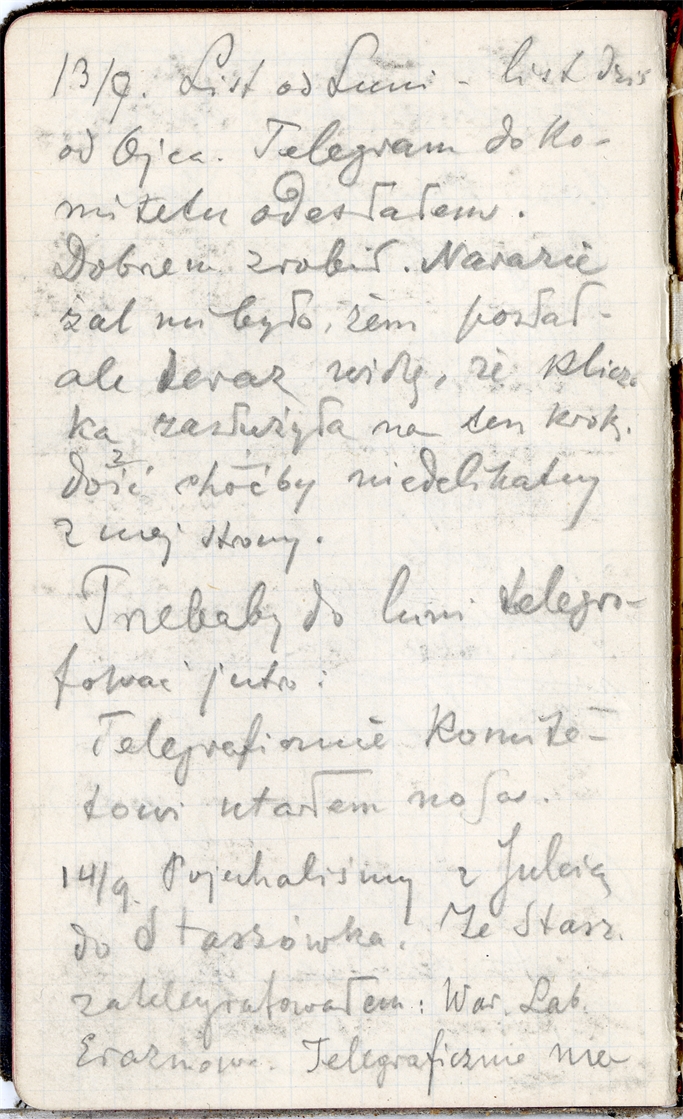 13/9. List od Luni - list dziś
od Ojca. Telegram do Ko-
mitetu odesłałem.
Dobrzem zrobił. Narazie
żal mi było, żem posłał -
ale teraz widzę, że klicz-
ka zasłużyła na ten krok,
dość choćby niedelikatny
z mej strony.
Trzebaby do Luni telegra-
fować jutro:
Telegraficznie Komite-
towi utarłem nosa.
14/9. Pojechaliśmy z Julcią
do Staszówka. Ze Stasz.
zatelegrafowałem: War. Lab.
Telegraficznie nie